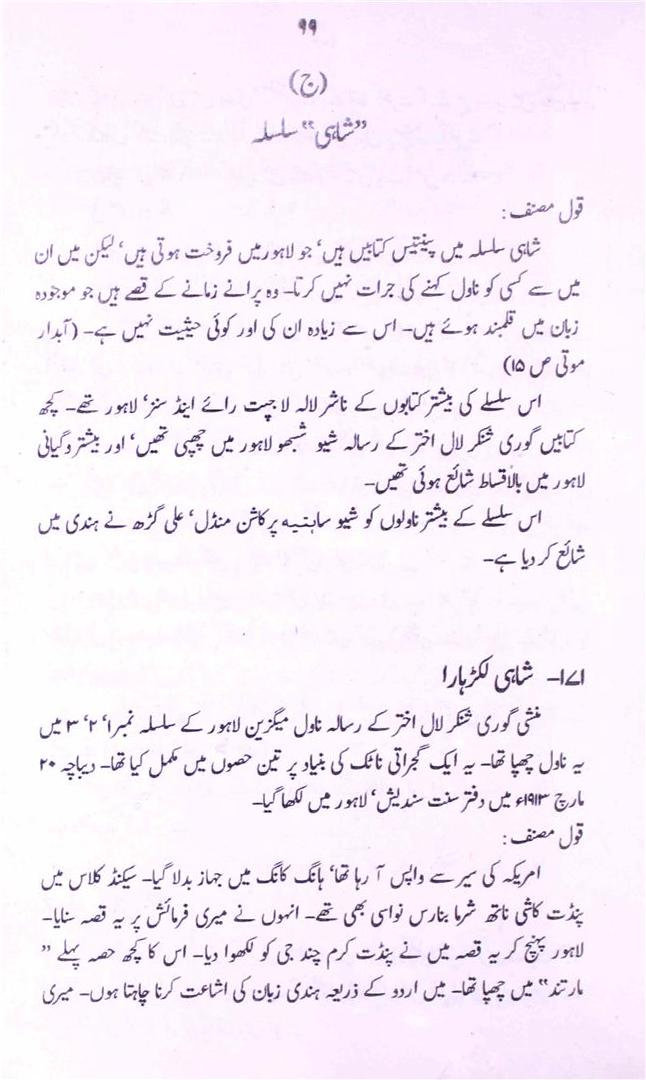 ۹۹
(ج)
”شاہی“ سلسلہ
قول مصنف :
شاہی سلسلہ میں پینتیس کتابیں ہیں‘ جو لاہور میں فروخت ہوتی ہیں‘ لیکن میں ان
میں سے کسی کو ناول کہنے کی جرات نہیں کرتا۔ وہ پرانے زمانے کے قصے ہیں جو موجودہ
زبان میں قلمبند ہوئے ہیں۔ اس سے زیادہ ان کی اور کوئی حیثیت نہیں ہے۔ (آبدار
موتی ص ۱۵)
اس سلسلے کی بیشتر کتابوں کے ناشر لالہ لاجپت رائے اینڈ سنز‘ لاہور تھے۔ کچھ
کتابیں گوری شنکر لال اختر کے رسالہ شیو شمبھو لاہور میں چھپی تھیں‘ اور بیشتر وگیانی
لاہور میں بالاقساط شائع ہوئی تھیں۔
اس سلسلے کے بیشتر ناولوں کو شیو ساہتیہ پرکاشن منڈل‘ علی گڑھ نے ہندی میں
شائع کر دیا ہے۔
۱۷۱۔ شاہی لکڑہارا
منشی گوری شنکر لال اختر کے رسالہ ناول میگزین لاہور کے سلسلہ نمبر۱‘ ۲‘ ۳ میں
یہ ناول چھپا تھا۔ یہ ایک گجراتی ناٹک کی بنیاد پر تین حصوں میں مکمل کیا تھا۔ دیباچہ ۲۰
مارچ ۱۹۱۳ء میں دفتر سنت سندیش‘ لاہور میں لکھا گیا۔
قول مصنف :
امریکہ کی سیر سے واپس آ رہا تھا‘ ہانگ کانگ میں جہاز بدلا گیا۔ سیکنڈ کلاس میں
پنڈت کاشی ناتھ شرما بنارس نواسی بھی تھے۔ انہوں نے میری فرمائش پر یہ قصہ سنایا۔
لاہور پہنچ کر یہ قصہ میں نے پنڈت کرم چند جی کو لکھوا دیا۔ اس کا کچھ حصہ پہلے ”
مارتند“ میں چھپا تھا۔ میں اردو کے ذریعہ ہندی زبان کی اشاعت کرنا چاہتا ہوں۔ میری